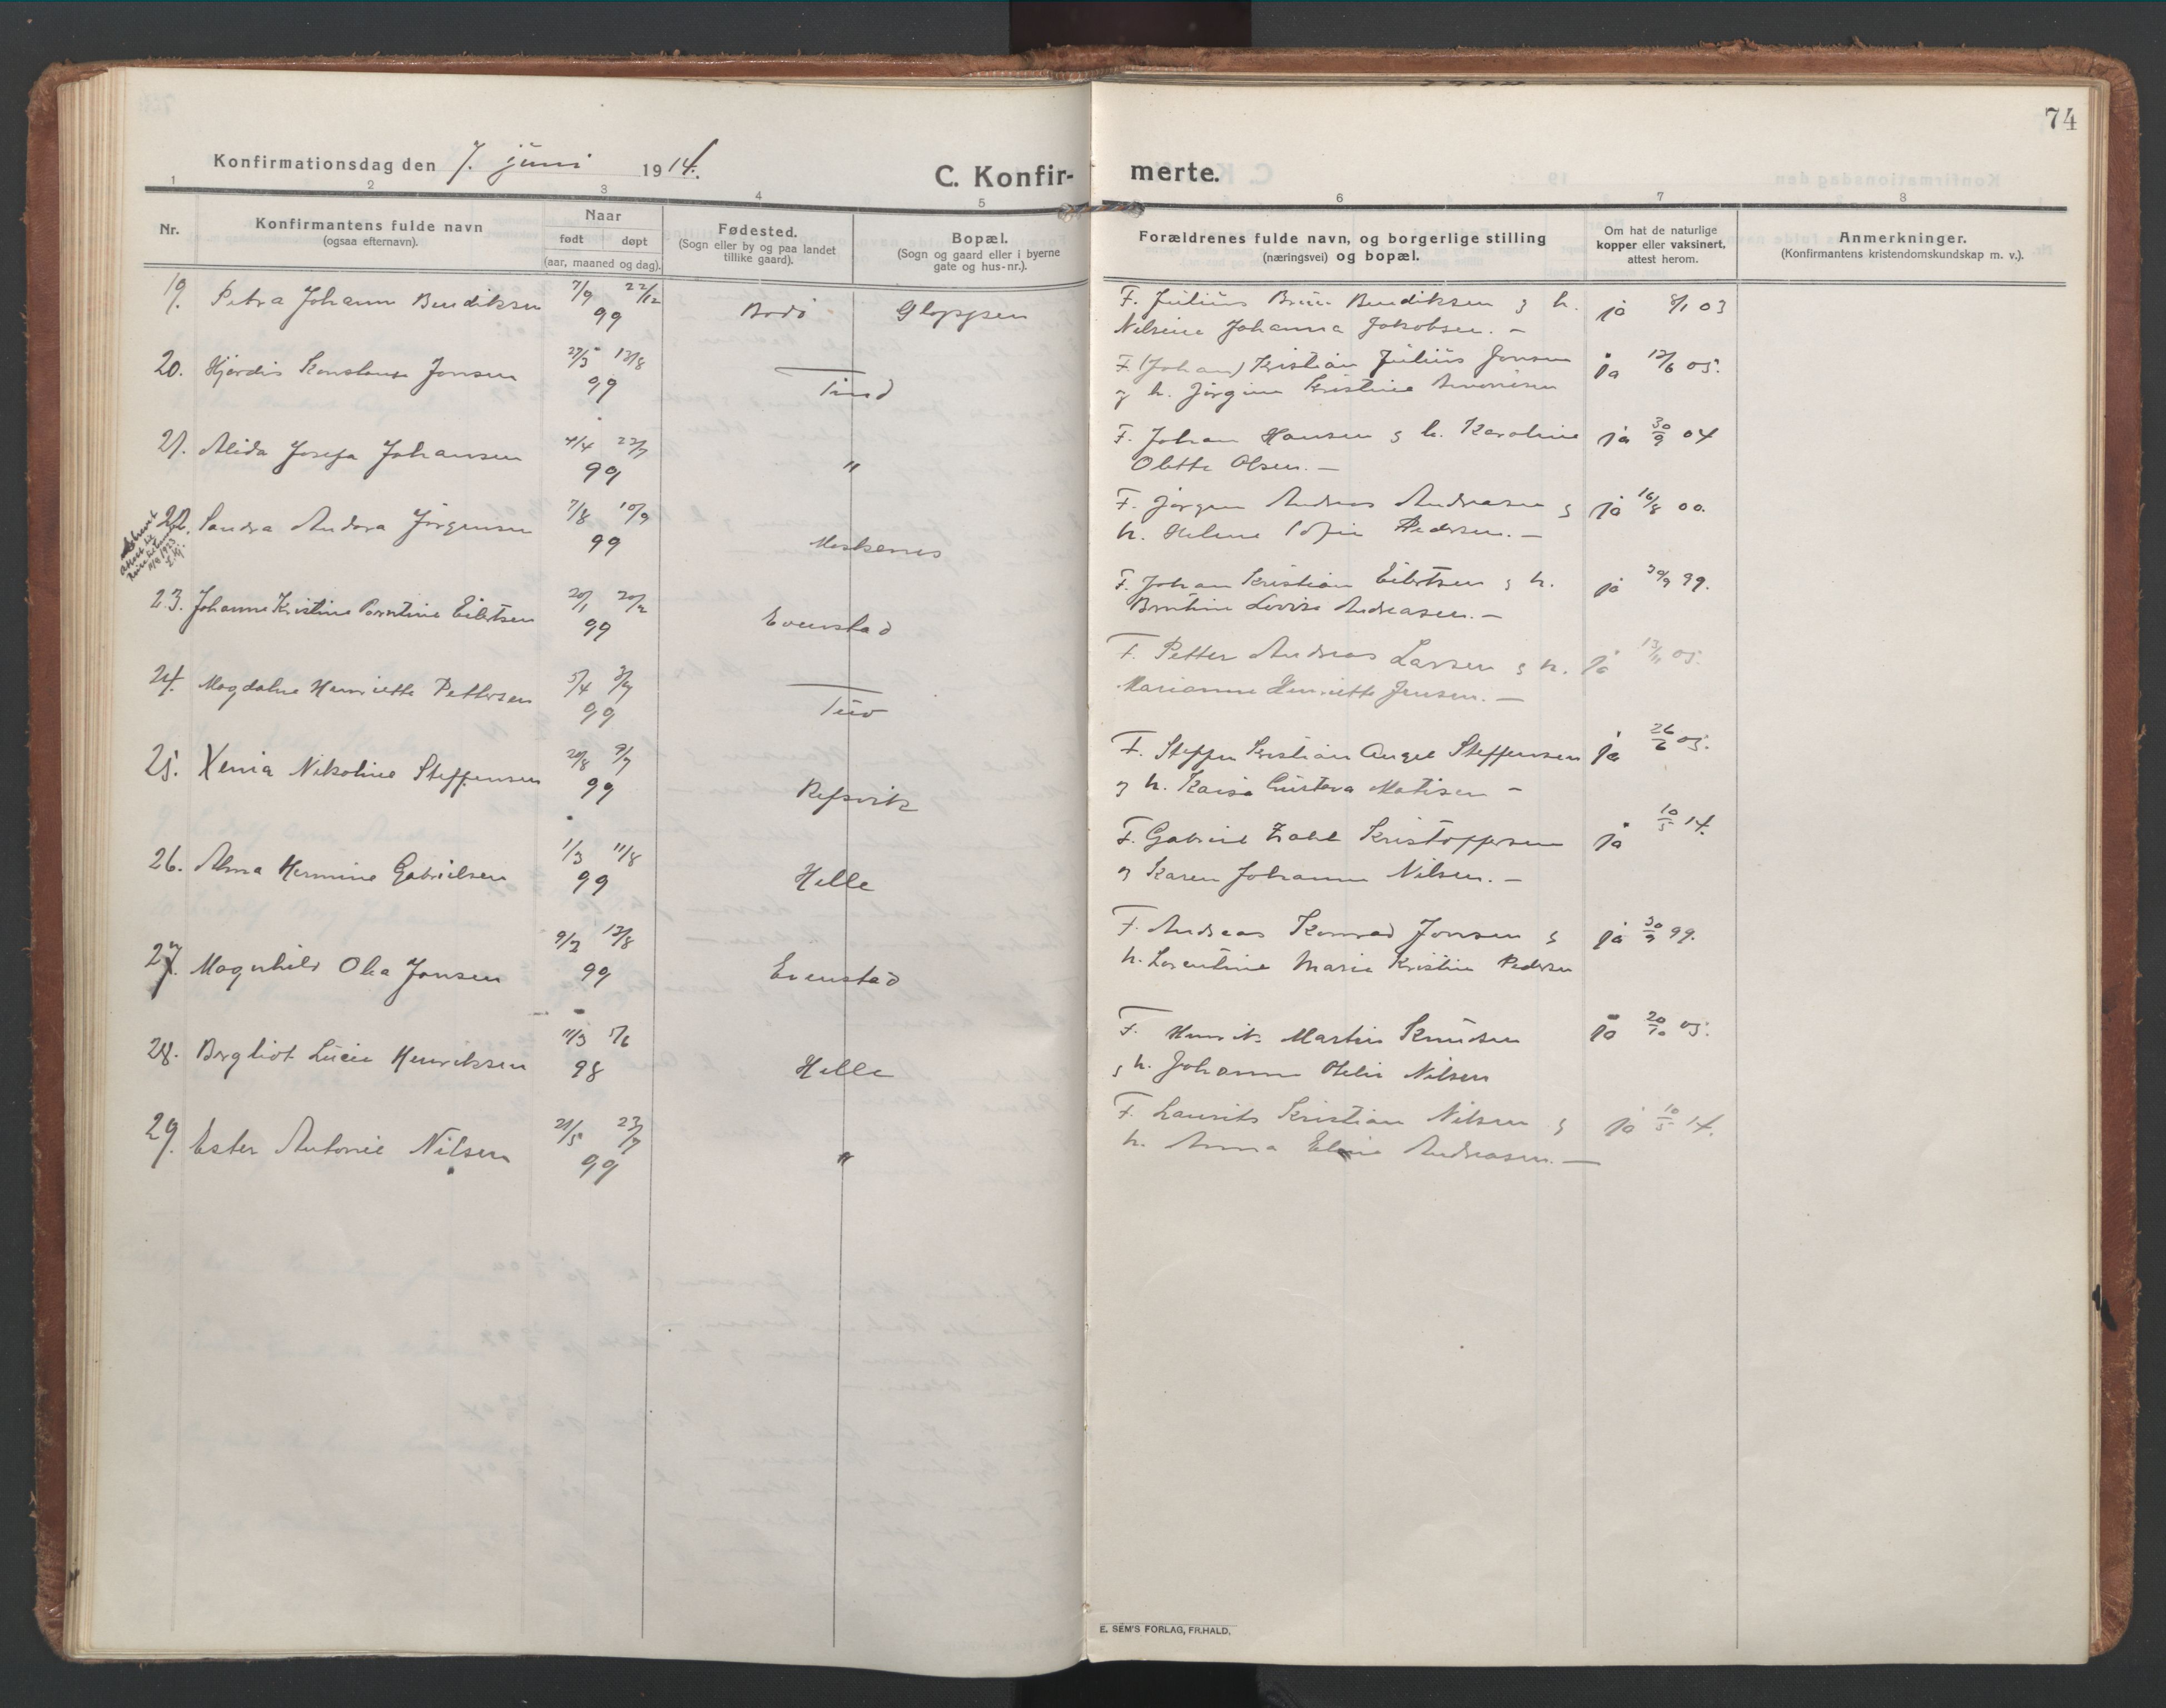 74
Konfirmationsdag den 7. juni 1914.
C. Konfirmerte.
1 2 3 4 5 6 7 8
Nr.
Konfirmantens fulde navn
(ogsaa efternavn).
Naar
født døpt
(aar, maaned og dag).
Fødested.
(Sogn eller by og paa landet
tillike gaard).
Bopæl.
(Sogn og gaard eller i byerne
gate og hus-nr.).
Forældrenes fulde navn, og borgerlige stilling
(næringsvei) og bopæl.
Om hat de naturlige
kopper eller vaksinert,
attest herom.
Anmerkninger.
(Konfirmantens kristendomskundskap m. v.).
19. Petra Johanne Bendiksen 7/9 22/12 99 Bodö Gloppen F. Julius Brun Bendiksen og h. ja 8/1 03
Nelsine Johanna Jakobsen. –
20. Hjördis Konstanse Jonsen 27/5 13/8 99 Tind F. (Johan) Kristian Julius Jonsen ja 13/6 05.
og h. Jörgine Kristine
21. Alida Josefa Johansen 4/4 23/7 99 " F. Johan Hansen og h. Karoline ja 30/9 04
Olette Olsen. –
22. Sandra Andora Jörgensen 7/8 10/9 99 Moskenes F. Jörgen Andreas Andreasen og ja 16/8 00.
h. Helene Sofie Pedersen. –
23. Johanne Kristine Berntine Eilertsen 20/1 20/2 99 Evenstad F. Johan Kristian Eilertsen og h. ja 30/9 99.
Berntine Lovise Andreasen. –
24. Magdalene Henriette Pettersen 5/4 3/7 99 Tind F. Petter Andreas Larsen og h. ja 13/11 05.
Marianne Henriette Jensen. –
25. Xenia Nikoline Steffensen 20/8 9/7 99 Refsvik F. Steffen Kristian Angel Steffensen ja 26/6 05.
og h. Kaisa Gustava Matisen –
26. Alma Hermine Gabrielsen 1/3 11/8 99 Helle F. Gabriel Zahl Kristoffersen ja 10/5 14.
og Karen Johanne Nilsen. –
27. Magnhild Olea Jonsen 9/3 13/8 99 Evenstad F. Andreas Konrad Jonsen og ja 30/9 99.
h. Lorentine Marie Kristine Pedersen
28. Bergliot Lucie Henriksen 11/3 5/6 98 Helle F. Henrik Martin Knudsen ja 20/10 05.
og h. Johanne Otelie Nilsen
29. Ester Antonie Nilsen 21/5 23/7 99 " F. Laurits Kristian Nilsen og ja 10/5 14.
h. Anna Elenie Andreasen. –
E. SEM'S FORLAG, FR.HALD.